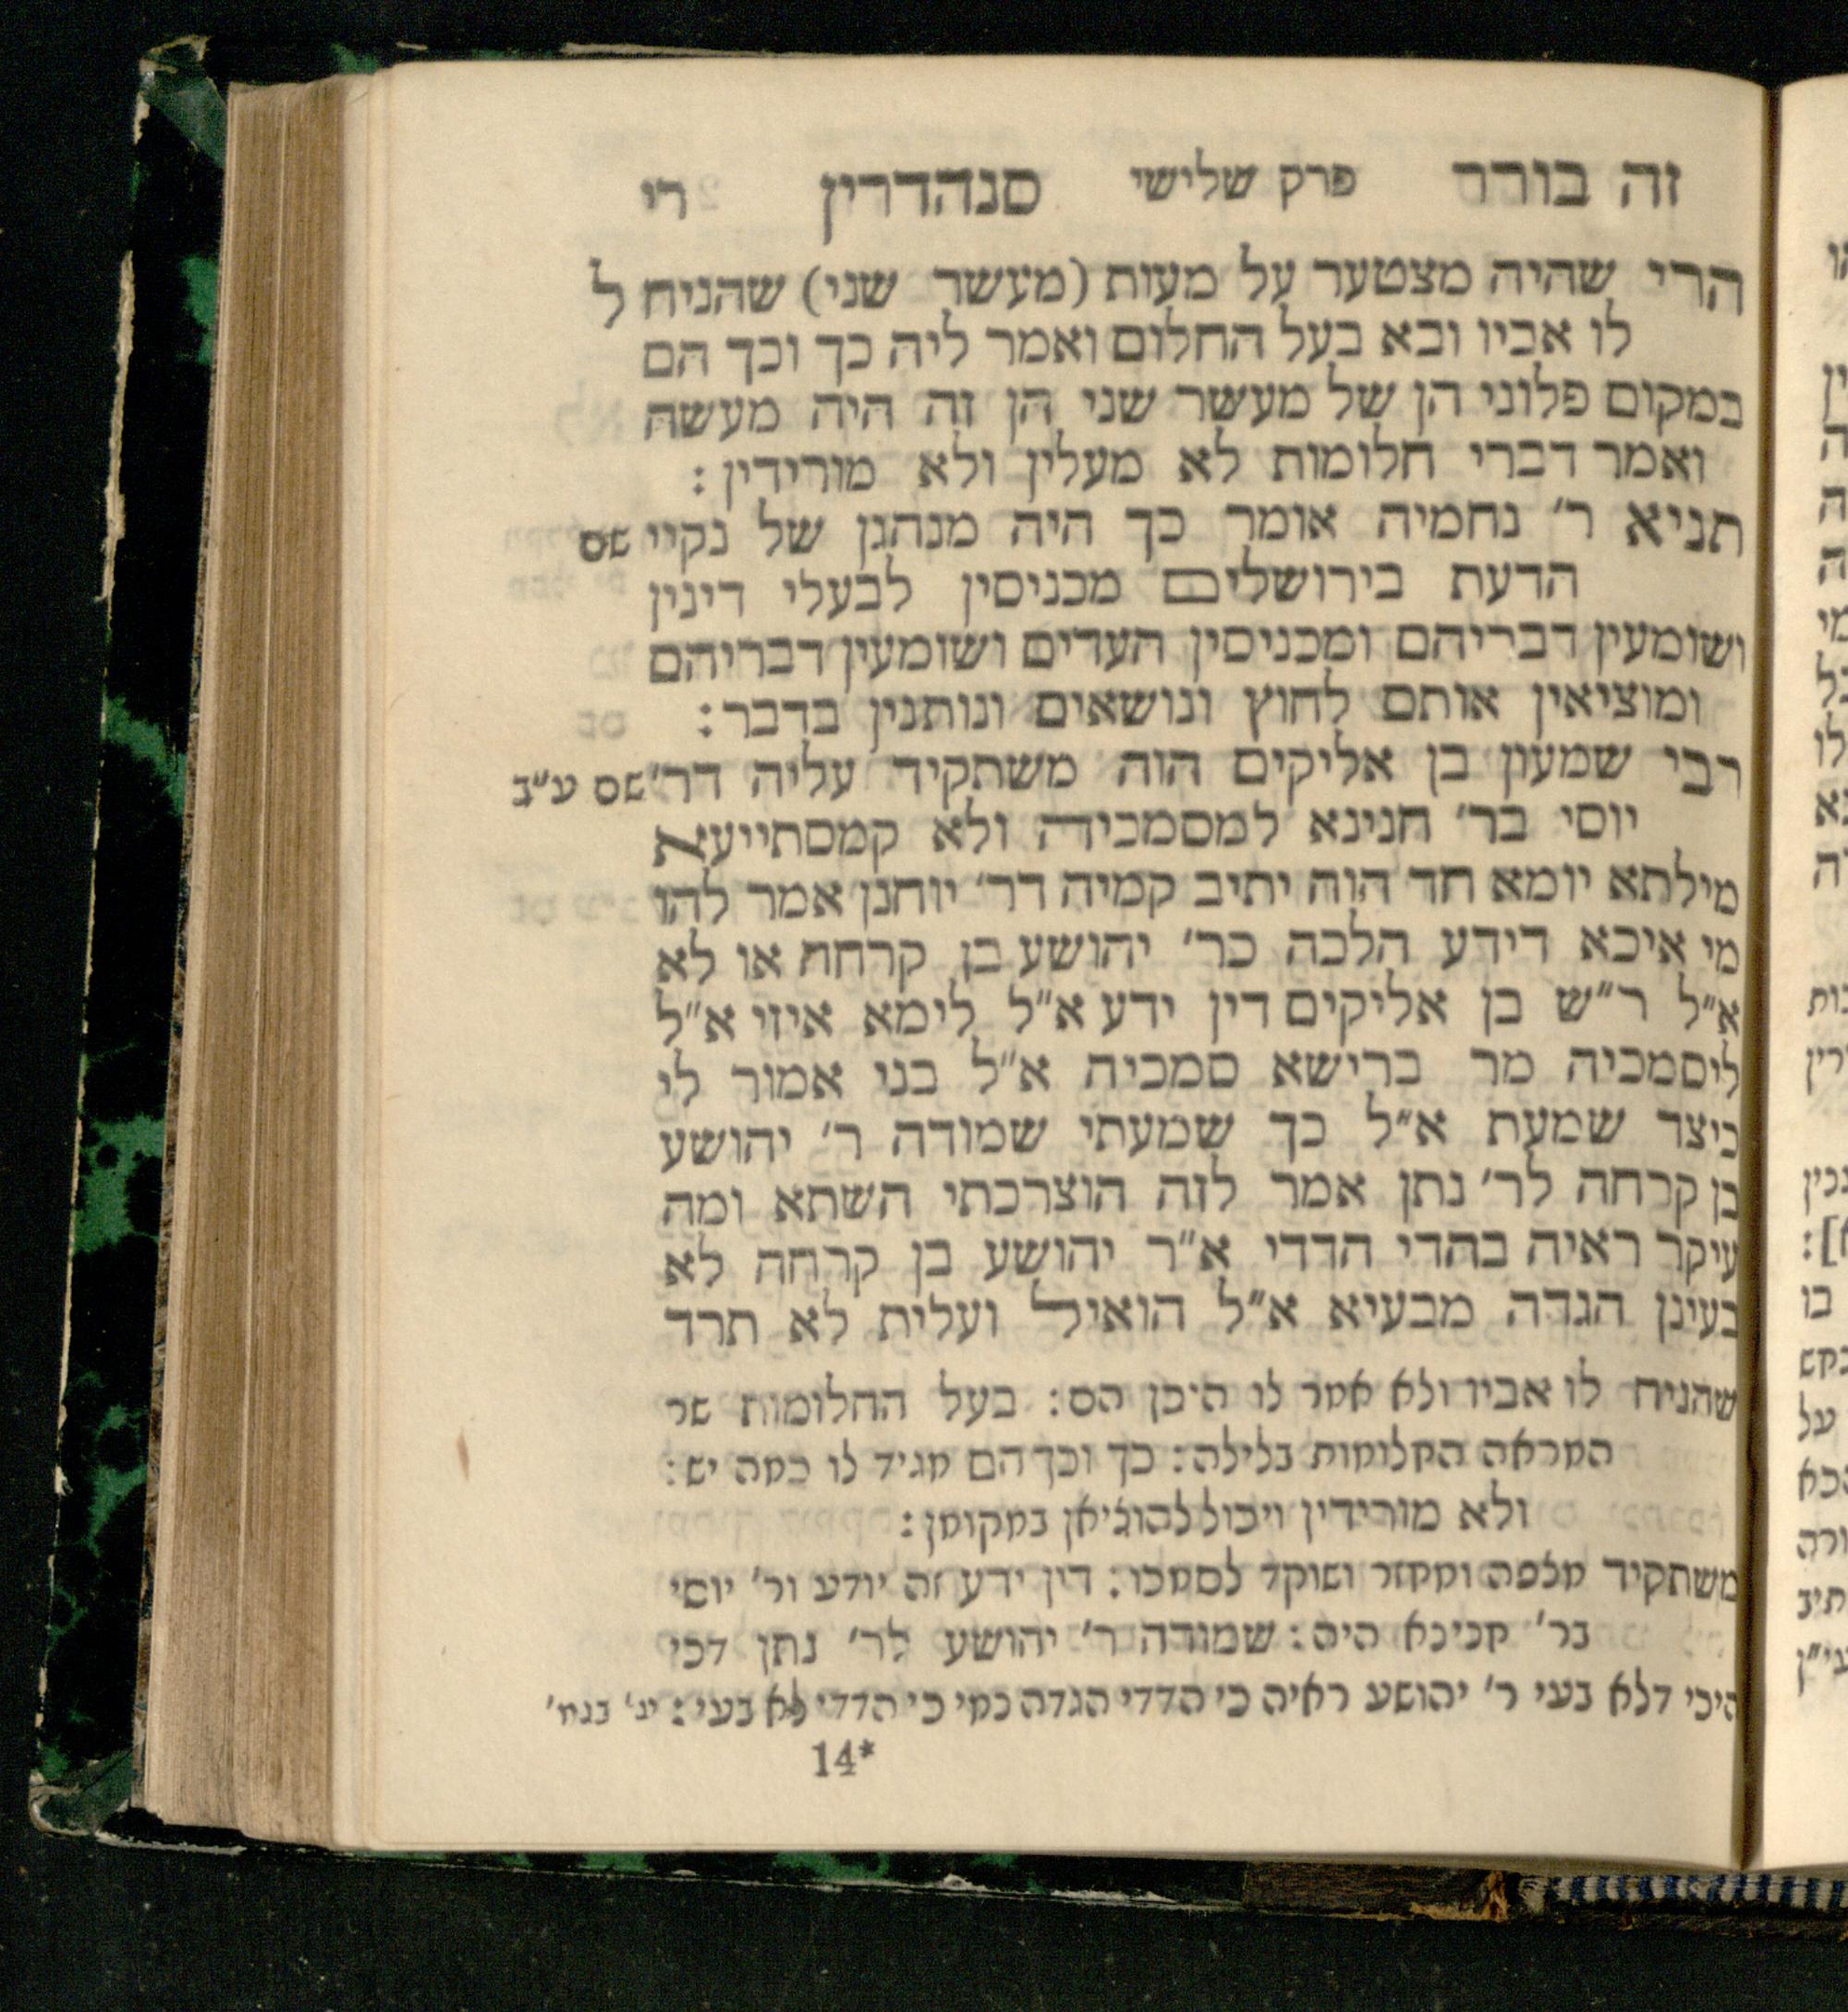 זה בורר פרק שלישי סנהדרין רי
הרי שהיה מצטער על מעות (מעשר שני) שהניח ל
לו אביו ובא בעל החלום ואמר ליה כך וכך הם
במקום פלוני הן של מעשר שני הן זה היה מעשה
ואמר דברי חלומות לא מעלין ולא מורידין :
תניא ר׳ נחמיה אומר כך היה מנהגן של נקיי שם
הדעת בירושלים מכניסין לבעלי דינין
ושומעין דבריהם ומכניסין העדים ושומעין דבריהם
ומוציאין אותם לחוץ ונושאים ונותנין בדבר :
רבי שמעון בן אליקים הוה משתקיד עליה דר׳ שם ע״ב
יוסי בר׳ חנינא למסמכיה ולא קמסתייעא
מילתא יומא חד הוה יתיב קמיה דר׳ יוחנן אמר להו
מי איכא דידע הלכה כר׳ יהושע בן קרחה או לא
א״ל ר״ש בן אליקים דין ידע א״ל לימא איזי א״ל
ליסמכיה מר ברישא סמכיה א״ל בני אמור לי
כיצד שמעת א״ל כך שמעתי שמודה ר׳ יהושע
בן קרחה לר׳ נתן אמר לזה הוצרכתי השתא ומה
עיקר ראיה בהדי הדדי א״ר יהושע בן קרחה לא
בעינן הגדה מבעיא א״ל הואיל ועלית לא תרד
שהניח לו אביו ולא אמר לו היכן הם : בעל החלומות שר
המראה החלומות בלילה : כך וכך הם מגיד לו כמה יש :
ולא מורידין ויכול להוציאן במקומן :
משתקיד מלפה ומחזר ושוקד לסמכו : דין ידע זה יודע ור׳ יוסי
בר׳ חנינא היה : שמודה ר׳ יהושע לר׳ נתן דכי
היכי דלא בעי ר׳ יהושע ראיה כי הדדי הגדה נמי כי הדדי לא בעי :
14*